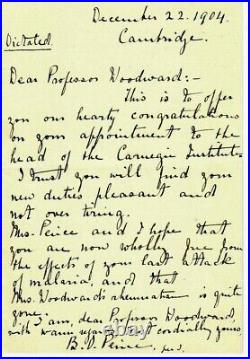 December 22. 1904.
Cambridge.
Dictated.
Dear Professor Woodward:-
This is to offer
you our hearty congratulations
on your appointment to the
head of the Carnegie Institute.
I trust you will find your
new duties pleasant and
not over tiring.
Mrs. Peirce and I hope that
you are now wholly free from
the effects of your last attack
of malaria, and that
Mrs. Woodward's rheumatism is quite
gone.
I am, dear Professor Woodward,
with warm regards, cordially yours
B. O. Peirce